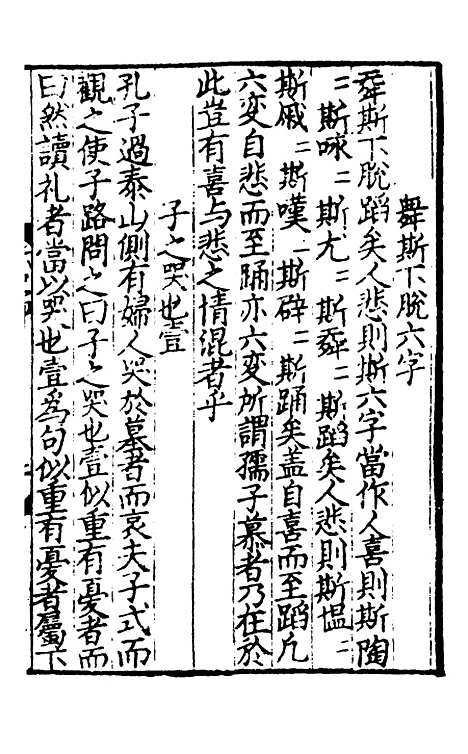 舞斯下脫六字
舜斯下脫蹈矣人悲則斯六字當作人喜則斯陶
二斯咏二斯尤二斯舜二斯蹈矣人悲則斯愠二
斯戚二斯嘆一斯辟二斯踊矣盖自喜而至蹈凢
六变自悲而至踊亦六变所謂孺子慕者乃在於
此豈有喜与悲之情混者乎
子之哭也壹
孔子過泰山側有婦人哭於墓者而哀夫子式而
觀之使子路問之曰子之哭也壹似重有憂者而
曰然讀礼者當以哭也壹爲句似重有憂者屬下